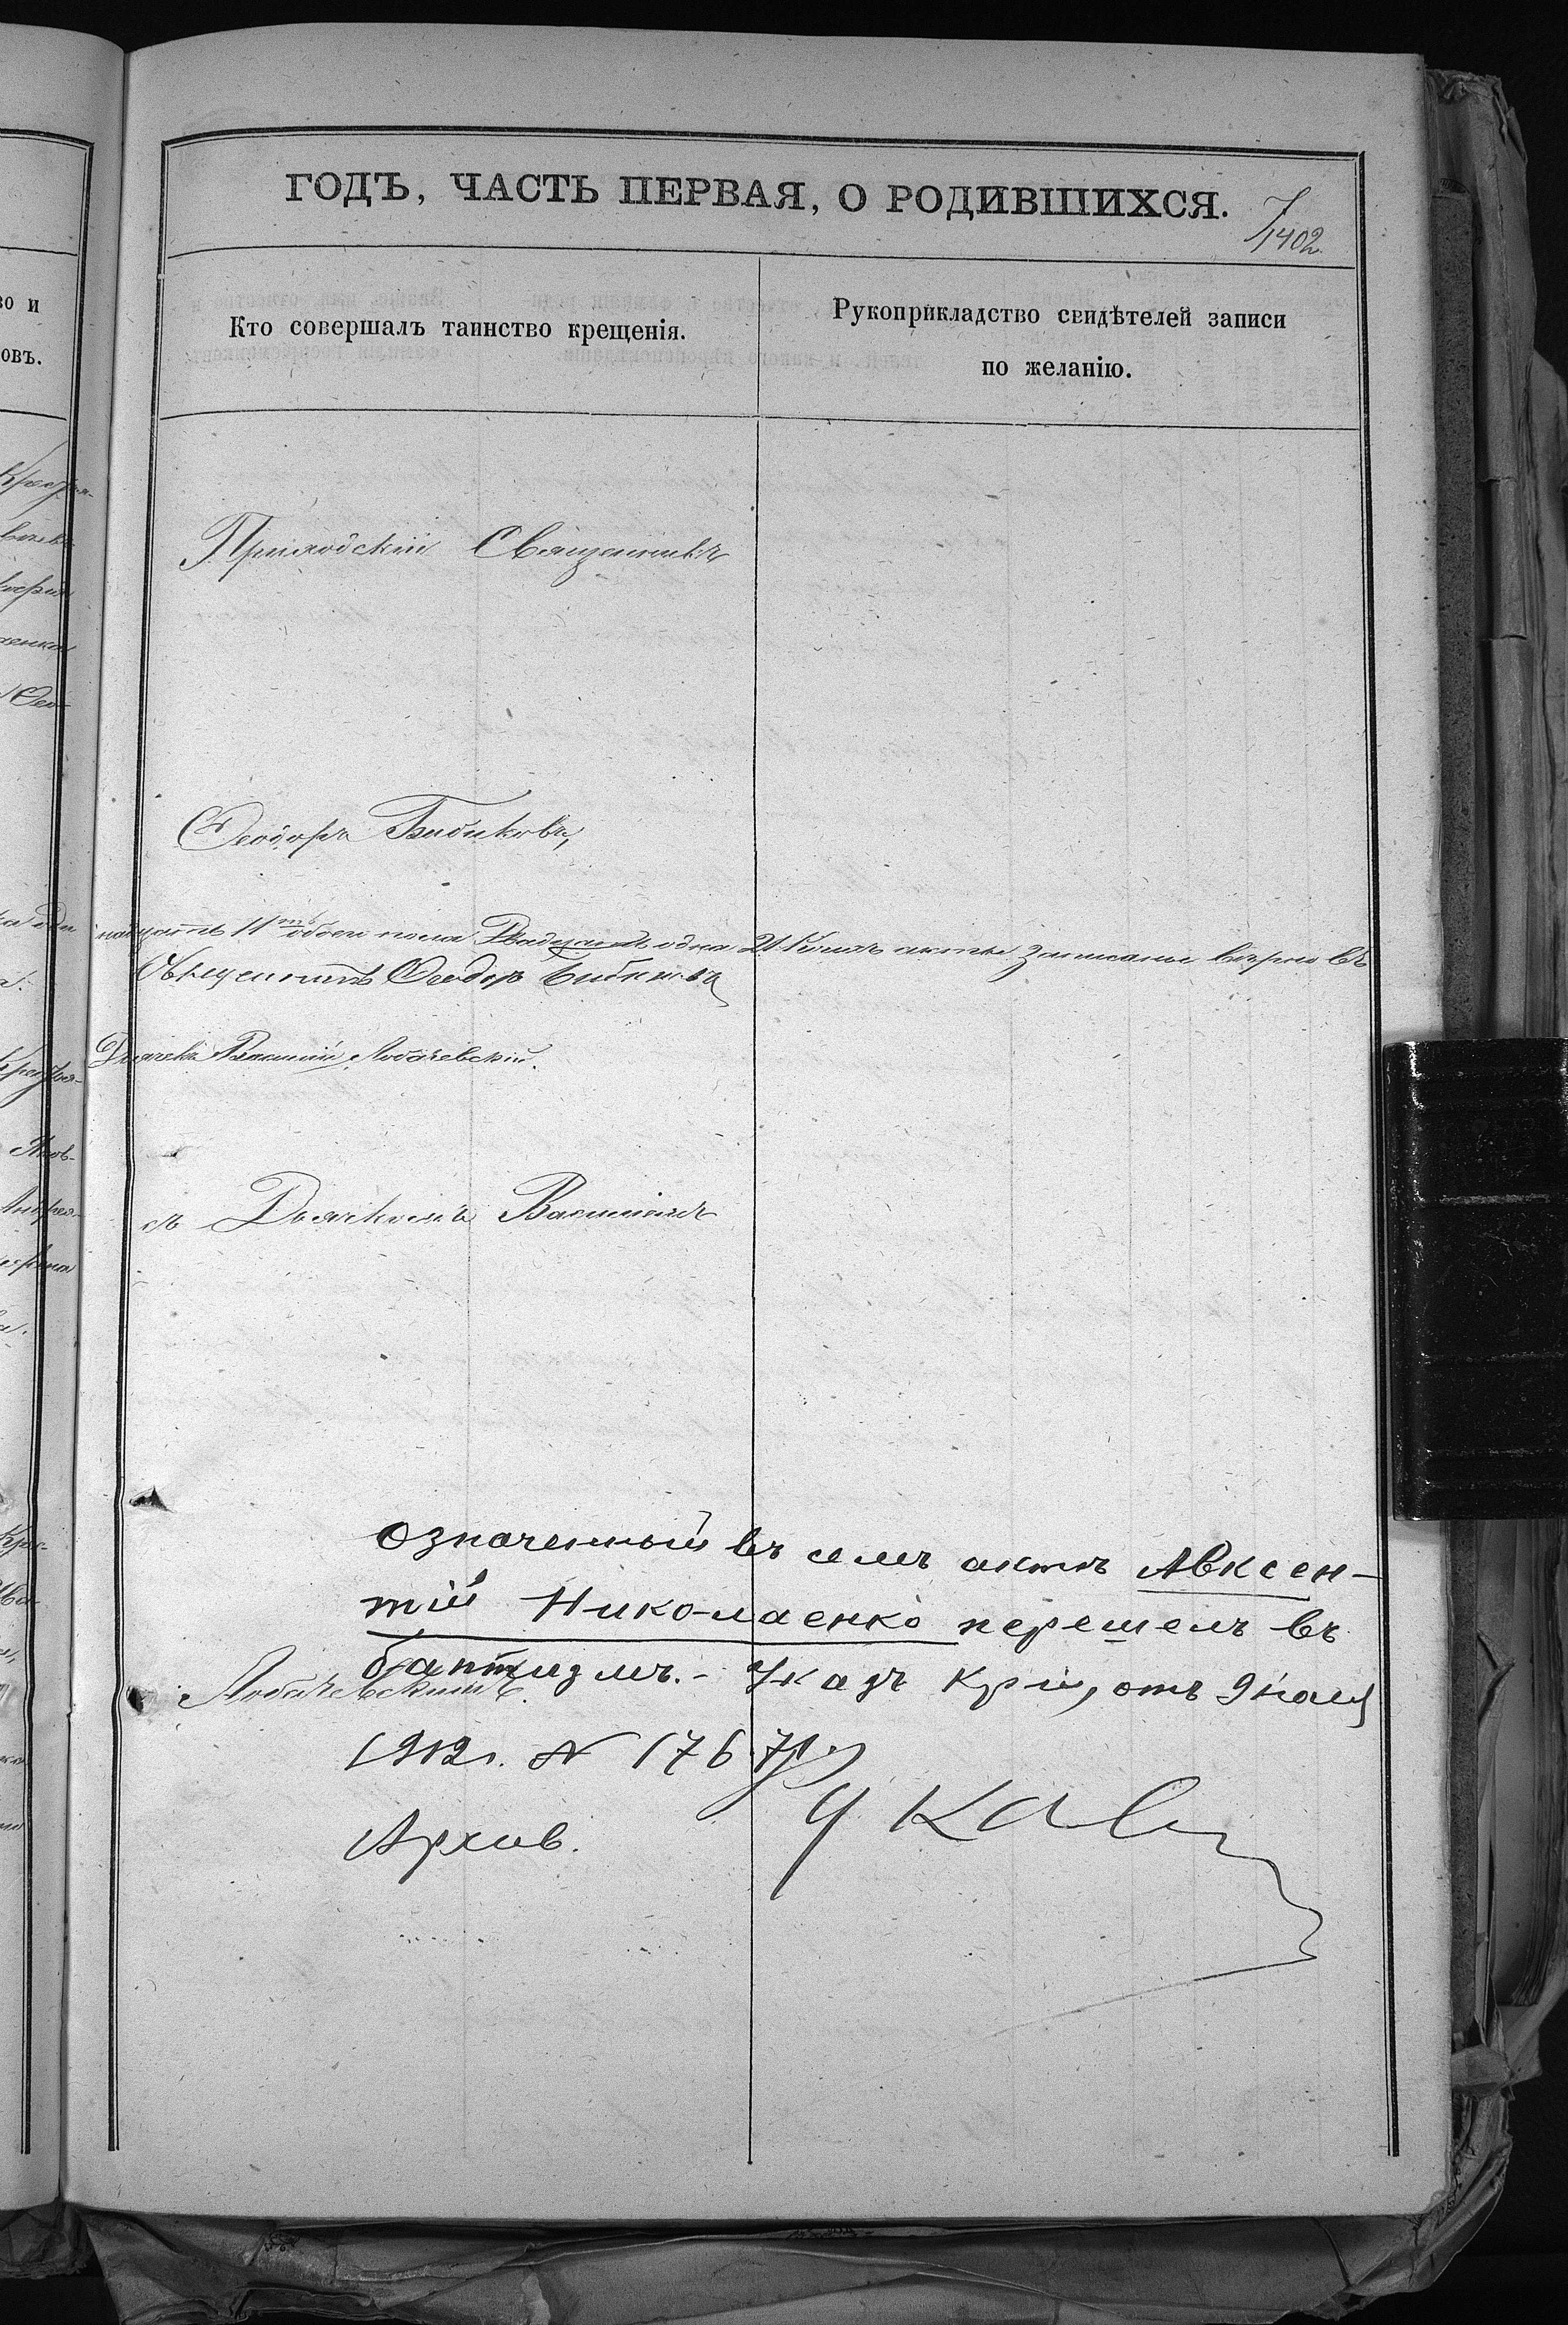 ГОДЪ, ЧАСТЬ ПЕРВАЯ, О РОДИВШИХСЯ.
1402
Кто совершалъ таинство крещенія.
Рукоприкладство свидѣтелей записи
по желанію.
Приходскій Священникъ
Ѳеодоръ Бибиковъ,
надцать 11 обоего пола Двадцать одна 21 акты записаны вѣрно въ
Священникъ Ѳеодоръ Бибиковъ
Дьячекъ Василій Лобачевскій.
съ Дьячкомъ Василіемъ
Лобачевскимъ.
Означенный въ семъ актѣ Авксен-
тій Николаенко перешелъ въ
баптизмъ. - Указъ отъ 9 мая
1912 г. № 17671
Архив.